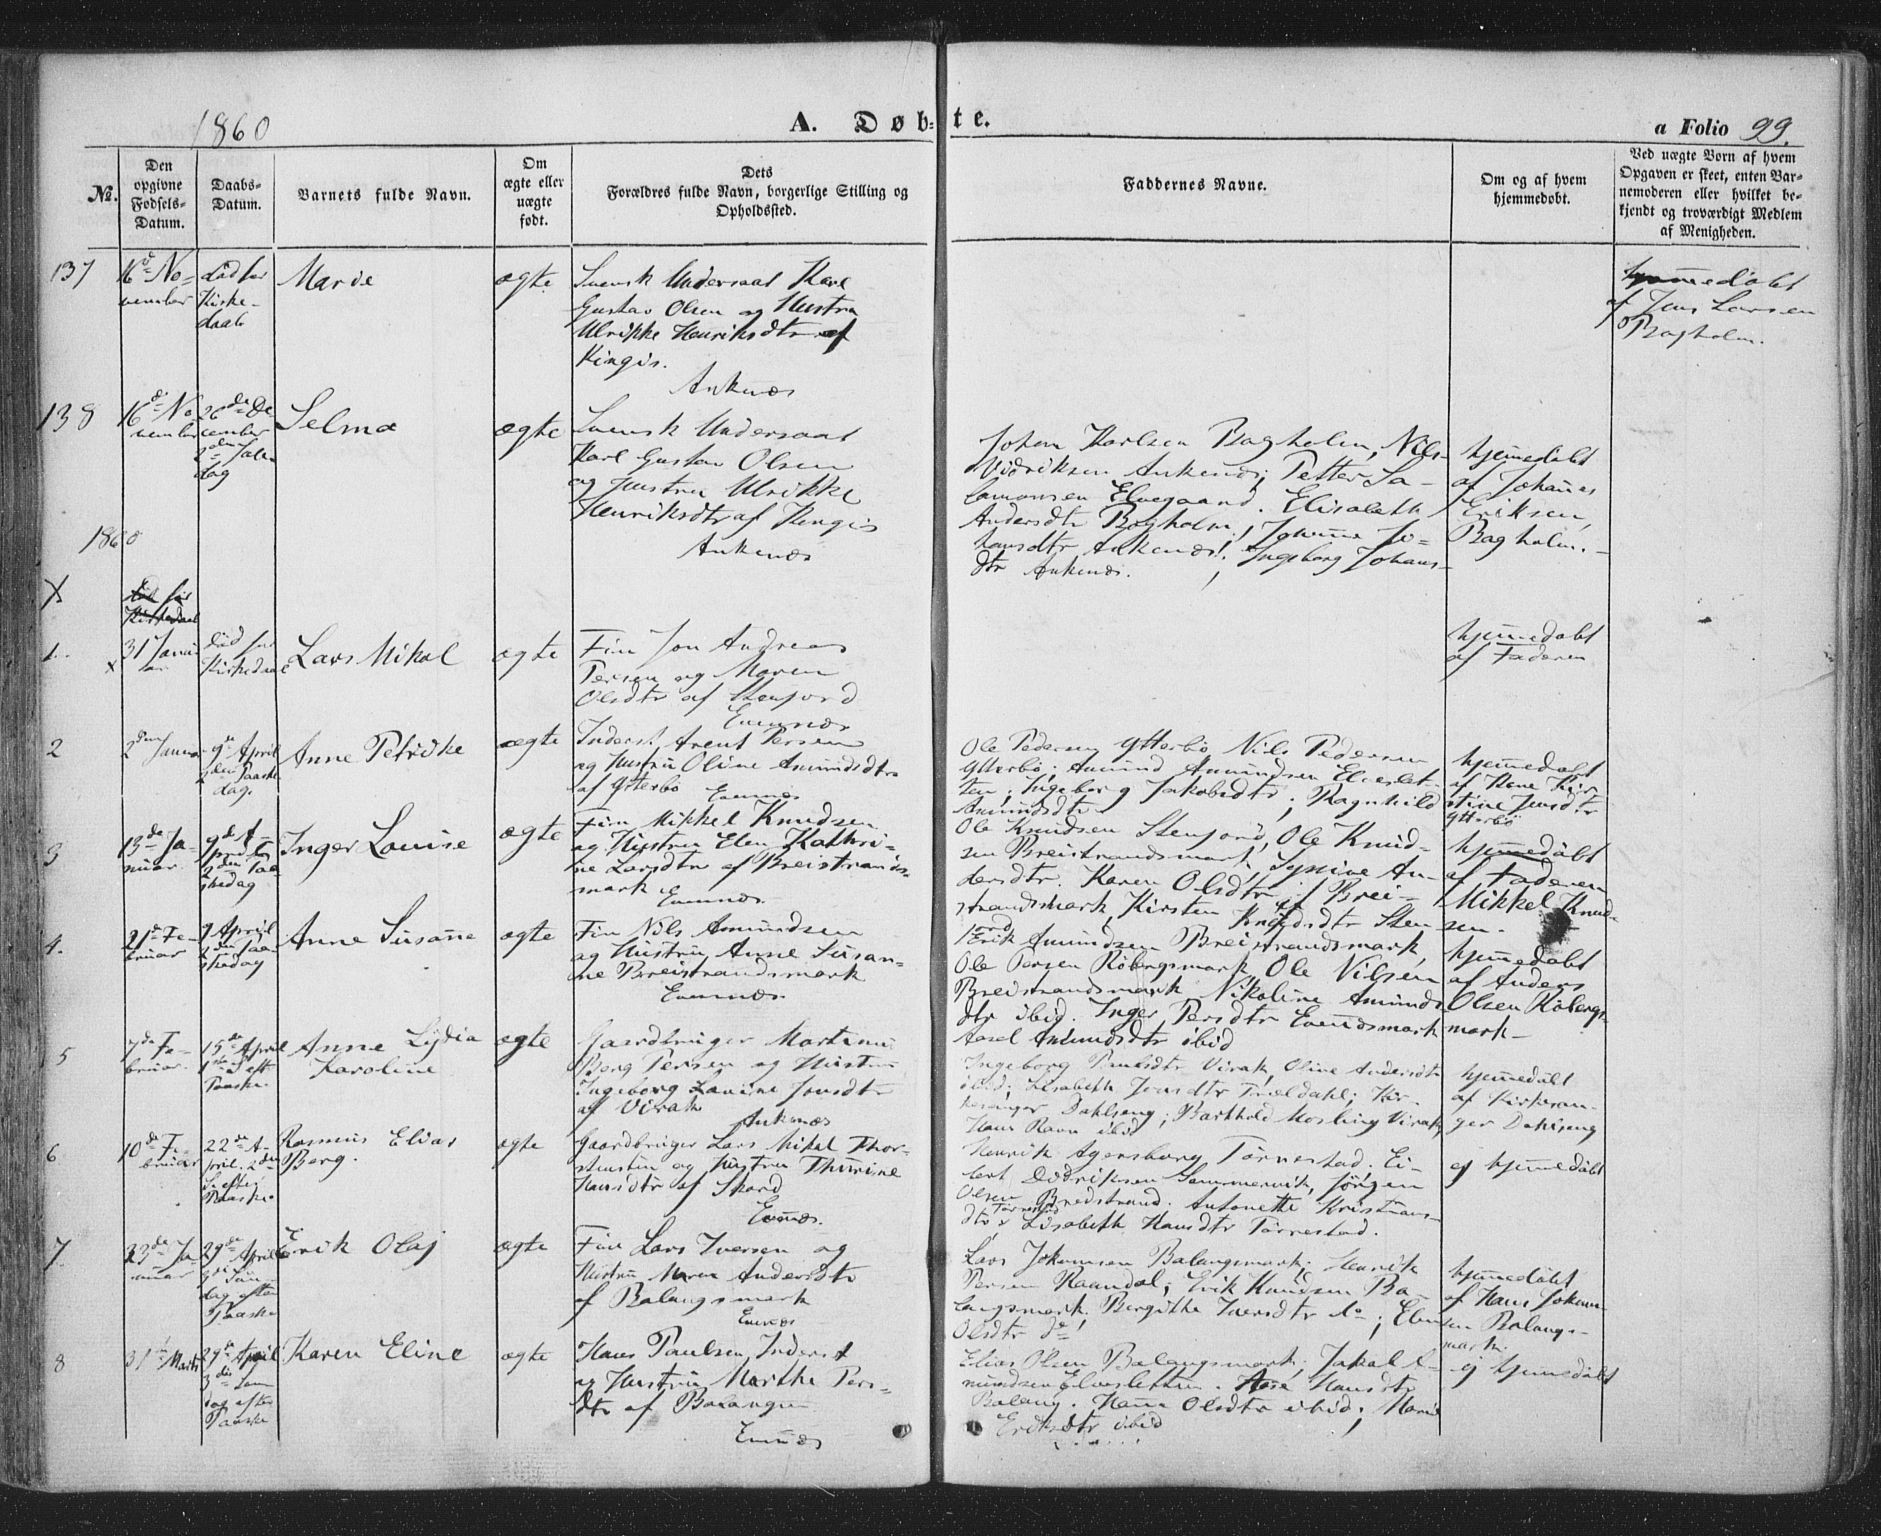 1860
A. Døb=te.
a Folio 99.
No.
Den opgivne Fødsels-Datum.
Daabs-Datum.
Barnets fulde Navn.
Om ægte eller uægte født.
Dets Forældres fulde Navn, borgerlige Stilling og Opholdssted.
Faddernes Navne.
Om og af hvem hjemmedøbt.
Ved uægte Børn af hvem Opgaven er skeet, enten Barnemoderen eller hvilket bekjendt og troværdigt Medlem af Menigheden.
137
16d No-
vember
død før
Kirke-
daab
Marie
ægte
Svensk Undersaat Karl
Gustav Olsen og Hustru
Ulrikke Henriksdtr af
Kingis.
Ankenæs
hjemmedøbt
af Jens Larsen
Bagholm.
138
16d No-
vember
26de De-
cember
2den Jule
dag
Selma
ægte
Svensk Undersaat
Karl Gustav Olsen
og Hustru Ulrikke
Henriksdtr af Kingis
Ankenæs
Johan Karlsen Bagholm, Nils
Didriksen Ankenæs; Petter Sa-
lamonsen Elvegaard. Elisabeth
Andersdtr Bagholm; Johanne Jo-
hansdtr Ankenæs; Ingeborg Johans-
dtr Ankenæs.
hjemmedøbt
af Johanes
Eriksen,
Bagholm.
1860
X
død før
Kirkedaab
1.
31 Janu
ar
Død før
Kirkedaab
Lars Mikal
ægte
Fin Jon Andreas
Persen og Maren
Olsdtr af Stenfjord
Evenæs
hjemmedøbt
af Faderen
2
2den Janua
9de April
2den Paaske
dag.
Anne Petrikke
ægte
Inderst Arent Persen
og Hustru Oline Amundsdtr
af Ytterbø
Evenæs
Ole Pedersen Ytterbø, Nils Pedersen
Ytterbø; Amund Amundsen Elveslet-
ten; Ingeborg Jakobsdtr; Ragnhild
Amundsdtr
hjemmedøbt
af Hane Kir
stine Jensdtr
Ytterbø
3
13de Ja-
nuar
9de A-
pril
2den Paa
skedag
Inger Louise
ægte
Fin Mikkel Knudsen
og Hustru Elen Kathri-
ne Larsdtr af Breistrands-
mark
Evenæs
Ole Knudsen Stenfjord, Ole Knud-
sen Breistrandsmark, Synive An-
dersdtr. Karen Olsdtr af Brei-
strandsmark, Kirsten Knudsdtr Sten
fjord
hjemmedøbt
af Faderen
Mikkel Knud-
sen.
4.
21de Fe-
bruar
9 April
2den Paa
skedag
Anne Susanne
ægte
Fin Nils Amundsen
og Hustru Anne Susan-
ne Breistrandsmark
Evenæs
Erik Amundsen Breistrandsmark,
Ole Persen Røbergsmark, Ole Nilsen
Breistrandsmark Nikoline Amunds
dtr ibid. Inger Persdtr Evenæsmark
Aasel Amundsdtr ibid
hjemmedøbt
af Anders
Olsen Røbergs-
mark
5
7de Fe-
bruar
15de April
1ste S. eft
Paaske
Anne Lydia
Karoline
ægte
Gaardbruger Martinus
Berg Persen og Hustru
Ingeborg Lavine Jonsdtr
af Virak
Ankenæs
Ingeborg Paulsdtr Virak, Oline Andersdtr
ibid; Elisabeth Jonsdtr Trældahl; Kir-
kesanger Dahlseng; Barthold Mosling Virak,
Hans Ravn ibid
hjemmedøbt
af Kirkesan-
ger Dahlseng
6
10de Fe-
bruar
22de A-
pril. 2den
S. efter
Paaske
Rasmus Elias
Berg.
ægte
Gaardbruger Lars Mikal Thor-
stensen og Hustru Thurine
Hansdtr af Skard
Evenæs.
Henrik Agersborg Tørrestad. Ei-
lert Didriksen Sommervik, Jørgen
Olsen Bredstrand. Antonette Kristians-
dtr Tørrestad, Lisabeth Hansdtr Tørrestad.
ej hjemmedøbt
7
23de Ja-
nuar
29de April
3die Søn
dag efter
Paaske
Erik Olaj
ægte
Fin Lars Iversen og
Hustru Maren Andersdtr
af Balangsmark
Evenæs
Lars Johansen Balangsmark; Henrik
Persen Raandal; Erik Knudsen Ba-
langsmark. Bergithe Iversdtr do; Elen
Olsdtr do
hjemmedøbt
af Hans Johan-
sen Balangs-
mark.
8
31te Marts
29de April
3die Søn
dag efter
Paaske
Karen Eline
ægte
Hans Paulsen, Inderst
og Hustru Marthe Pers-
dtr af Balangen
Evenæs
Elias Olsen Balangsmark; Jakob A-
mundsen Elvesletten. Aase Hansdtr
Balang. Hanna Olsdtr ibid; Marie
Eriksdtr ibid
ej hjemmedøbt